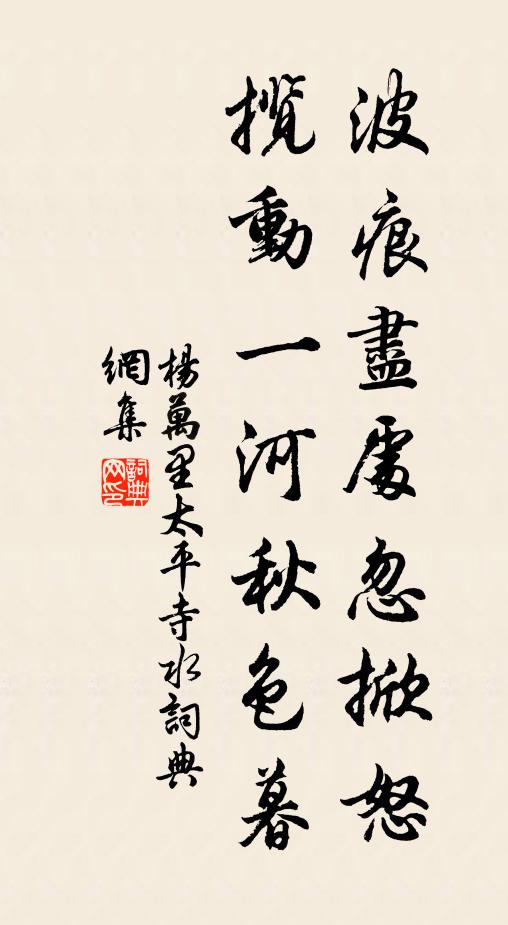 波痕盡處忽掀怒
攪動一河秋色暮
楊萬里太平寺水詞典
網集
詞典网印